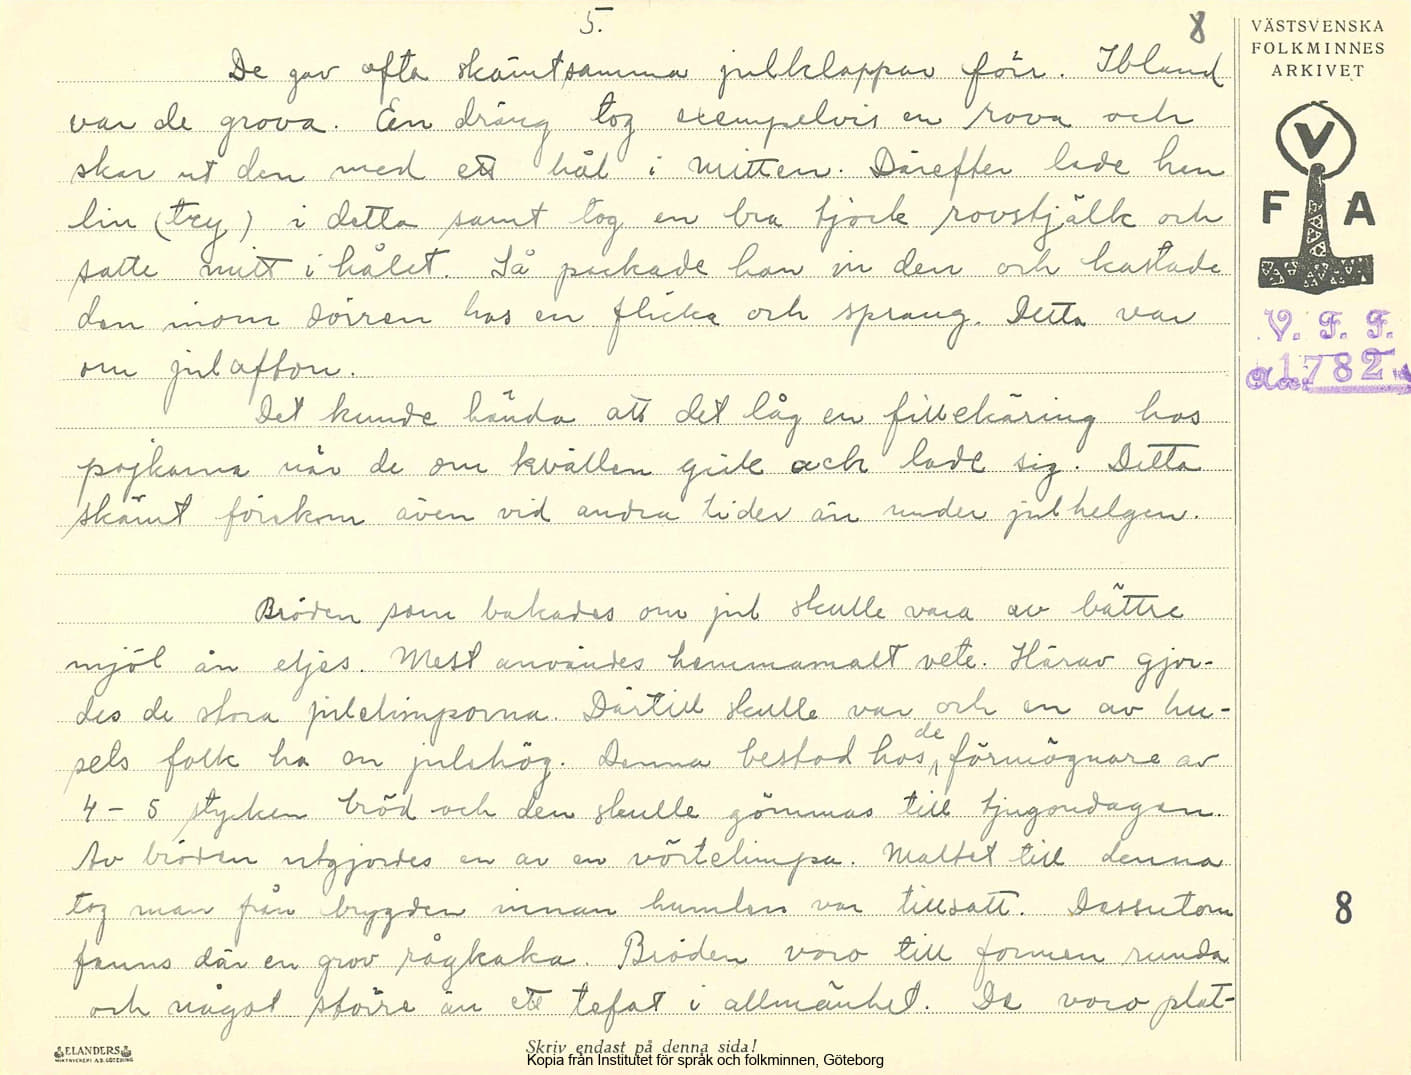 5.
8
VÄSTSVENSKA
FOLKMINNES
ARKIVET
V
F A
V. F. F.
1782
De gav ofta skämtsamma julklappar förr. Ibland
var de grova. En dräng tog exempelvis en rova och
skar ut den med ett hål i mitten. Därefter lade han
lin (try) i detta samt tog en bra tjock rovstjälk och
satte mitt i hålet. Så packade han in den och kastade
den inom dörren hos en flicka och sprang. Detta var
om julafton.
Det kunde hända att det låg en fillekäring hos
pojkarna när de om kvällen gick och lade sig. Detta
skämt förekom även vid andra tider än under julhelgen.
Bröden som bakades om jul skulle vara av bättre
mjöl än eljes. Mest användes hemmamalt vete. Härav gjor-
des de stora julelimporna. Därtill skulle var och en av hu-
sets folk ha en julehög. Denna bestod hos de förmögnare av
4 – 5 stycken bröd och den skulle gömmas till tjugondagen.
Av bröden utgjordes en av en vörtelimpa. Maltet till denna
tog man från brygden innan humlen var tillsatt. Dessutom
fanns där en grov rågkaka. Bröden voro till formen runda
och något större än ett tefat i allmänhet. De voro plat-
8
ELANDERS
Skriv endast på denna sida!
Kopia från Institutet för språk och folkminnen, Göteborg